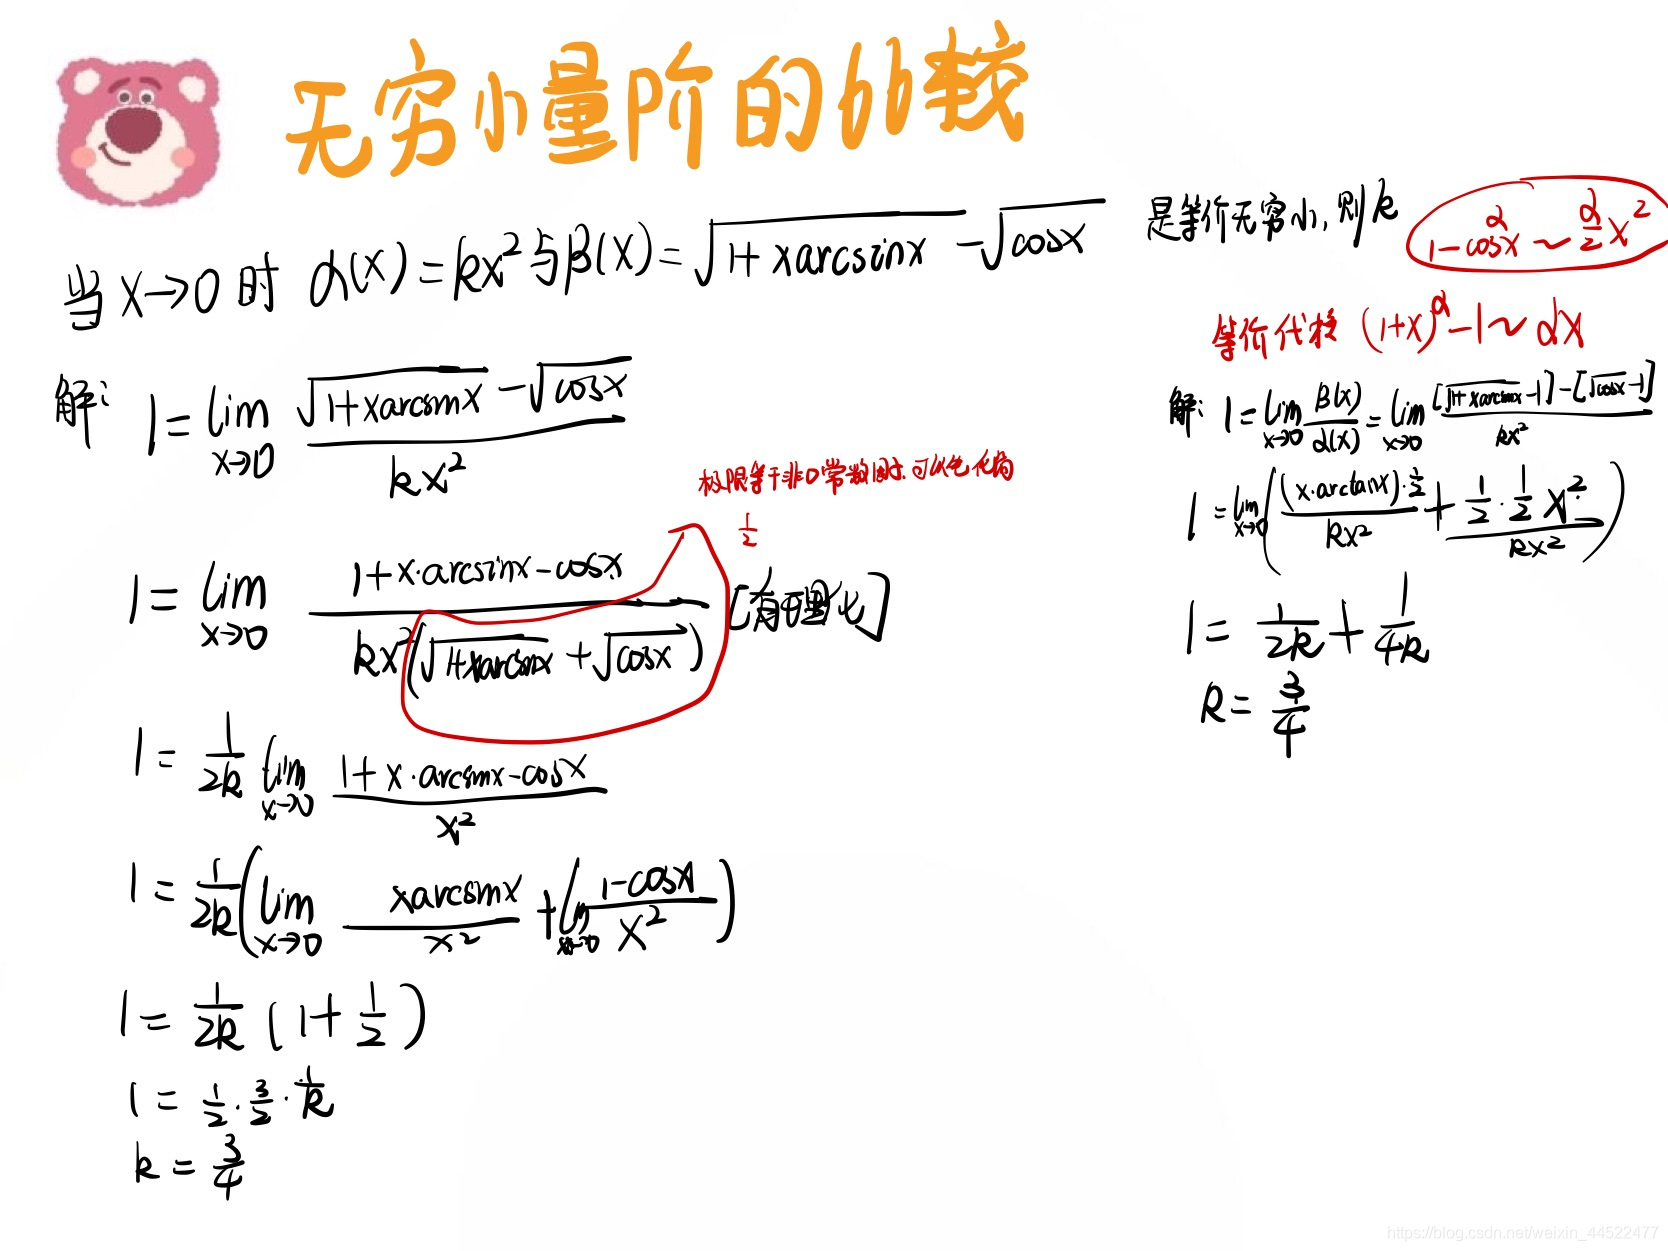 无穷小量阶的比较
当 x→0 时 α(x) = kx² 与 β(x) = √(1+xarcsinx) − √(cosx) 是等价无穷小, 则 k
解: 1 = lim x→0 (√(1+xarcsinx) − √(cosx)) / kx²
极限等于非0常数时, 可以先代
1/2
1 = lim x→0 (1+x·arcsinx−cosx) / (kx²(√(1+xarcsinx) + √(cosx))) [有理化]
1 = 1/2k lim x→0 (1+x·arcsinx−cosx) / x²
1 = 1/2k (lim x→0 xarcsinx / x² + lim x→0 (1−cosx) / x²)
1 = 1/2k (1+1/2)
1 = 1/2 · 3/2 · 1/k
k = 3/4
1−cos^α x ~ α/2 x²
等价代换 (1+x)^α −1 ~ αx
解: 1 = lim x→0 β(x)/α(x) = lim x→0 ([√(1+xarcsinx) −1] − [√(cosx) −1]) / kx²
1 = lim x→0 ((x·arctanx)·1/2 / kx² + 1/2·1/2 x² / kx²)
1 = 1/2k + 1/4k
k = 3/4
https://blog.csdn.net/weixin_44522477